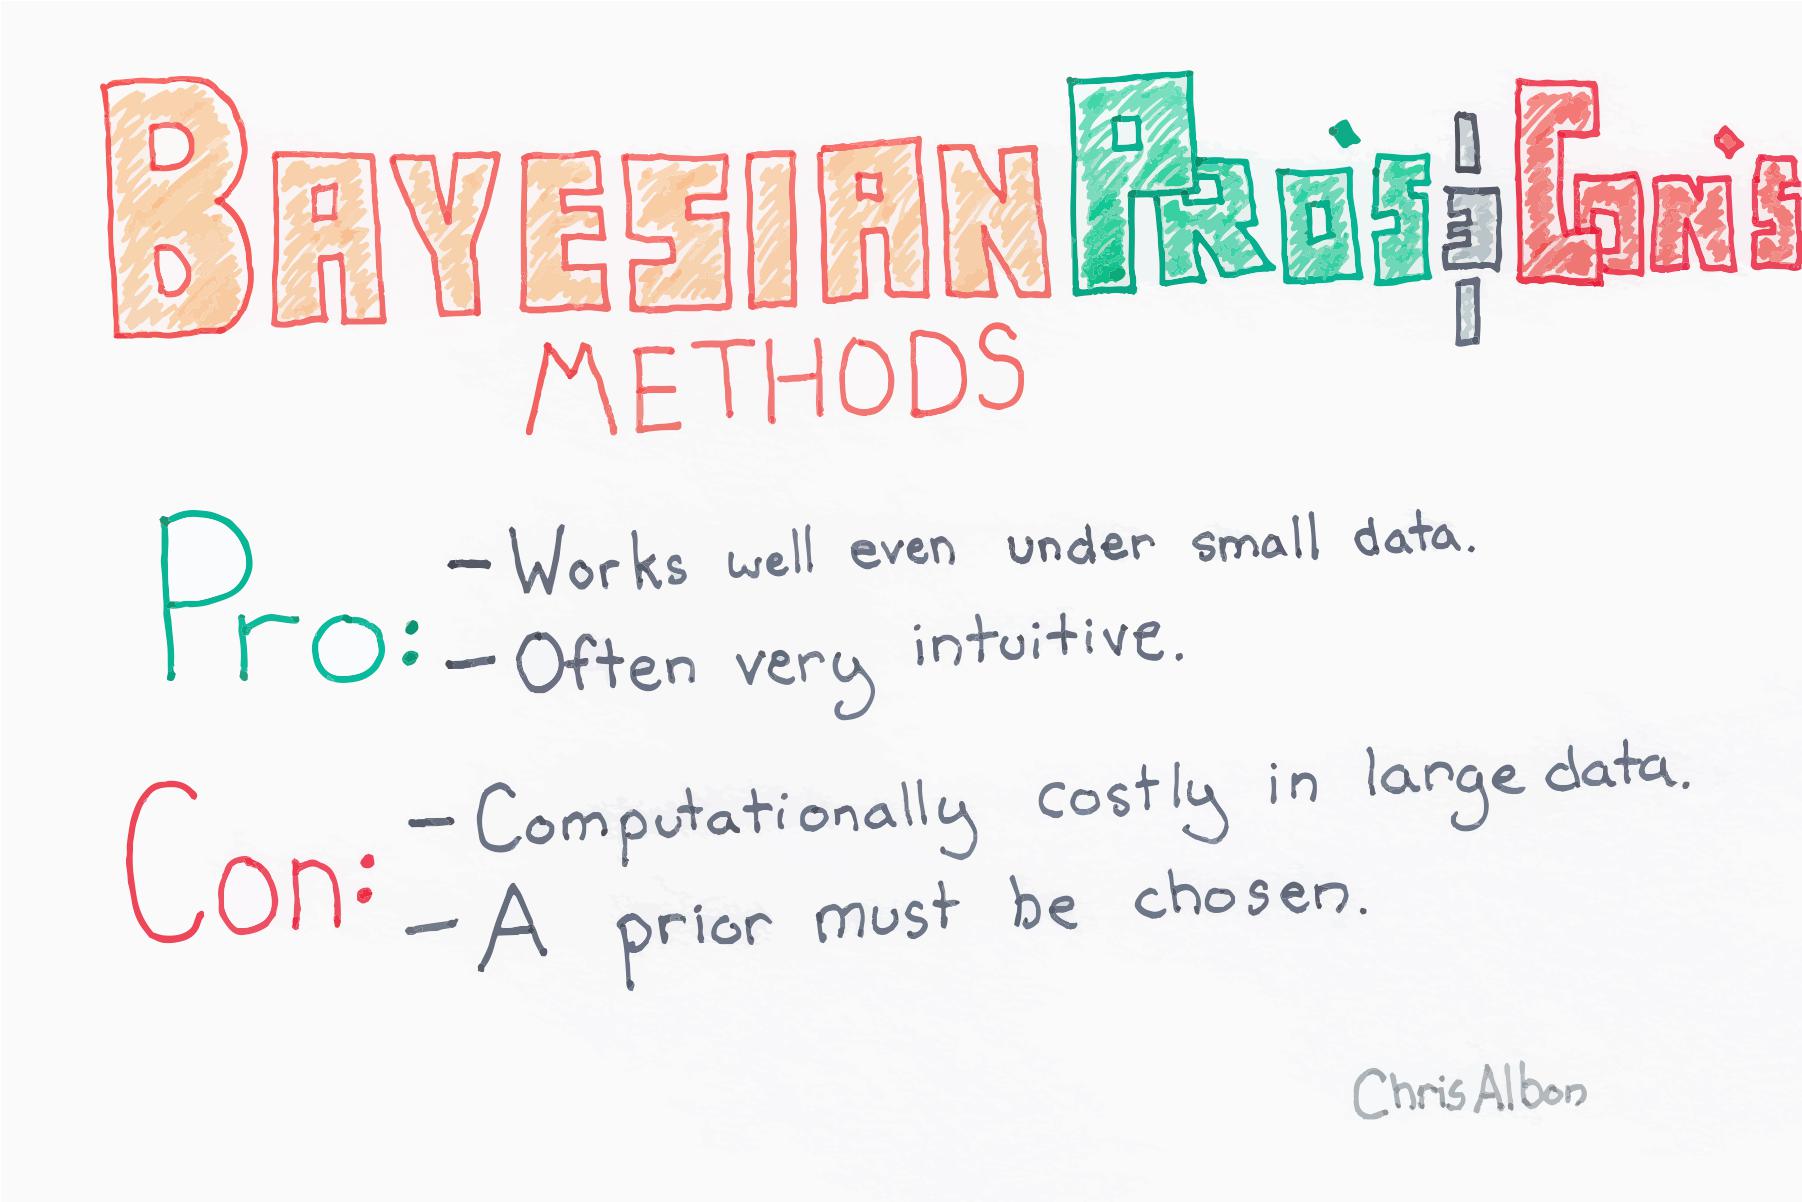 BAYESIAN PRO'S $ CON'S
METHODS
Pro:
- Works well even under small data.
- Often very intuitive.
Con:
- Computationally costly in large data.
- A prior must be chosen.
Chris Albon